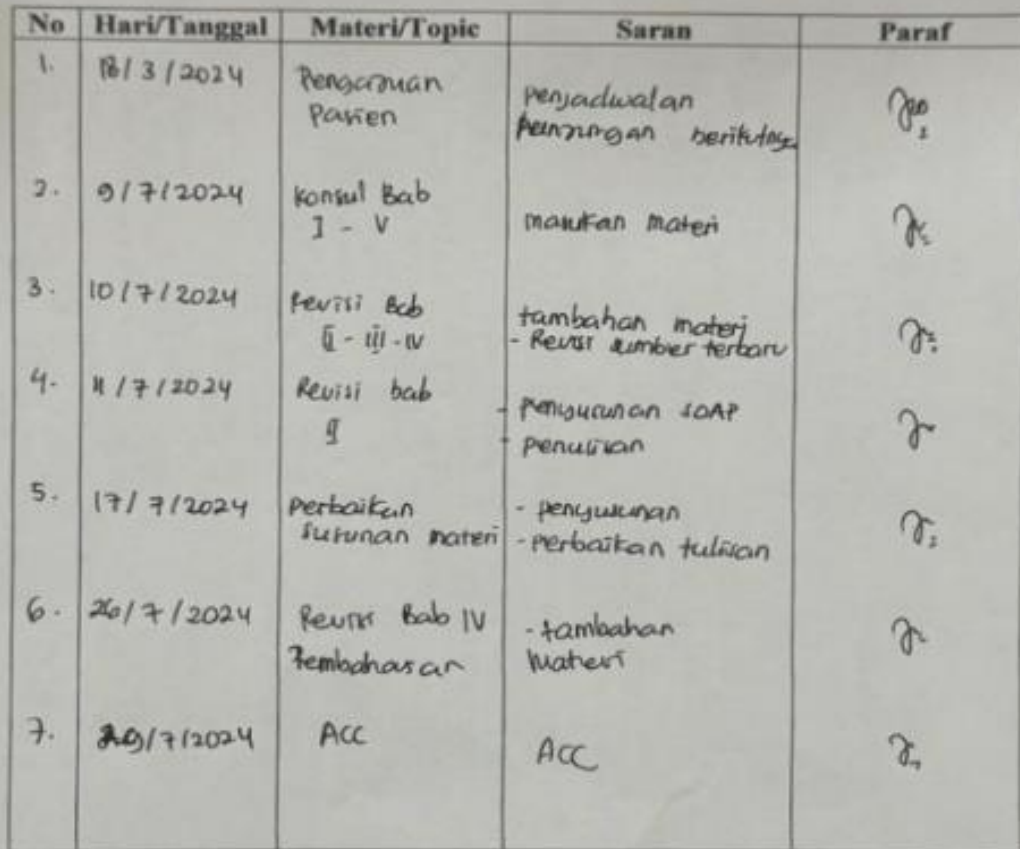 No Hari/Tanggal Materi/Topic Saran Paraf
1. 18/3/2024 Pengajuan penjadwalan
Pasien kunjungan berikutnya
2. 9/7/2024 Konsul Bab masukan materi
I - V
3. 10/7/2024 Revisi Bab tambahan materi
II - III - IV - Revisi sumber terbaru
4. 11/7/2024 Revisi bab - penyusunan SOAP
- penulisan
5. 17/7/2024 perbaikan - penyusunan
susunan materi - perbaikan tulisan
6. 26/7/2024 Revisi Bab IV - tambahan
Pembahasan Materi
7. 29/7/2024 ACC ACC